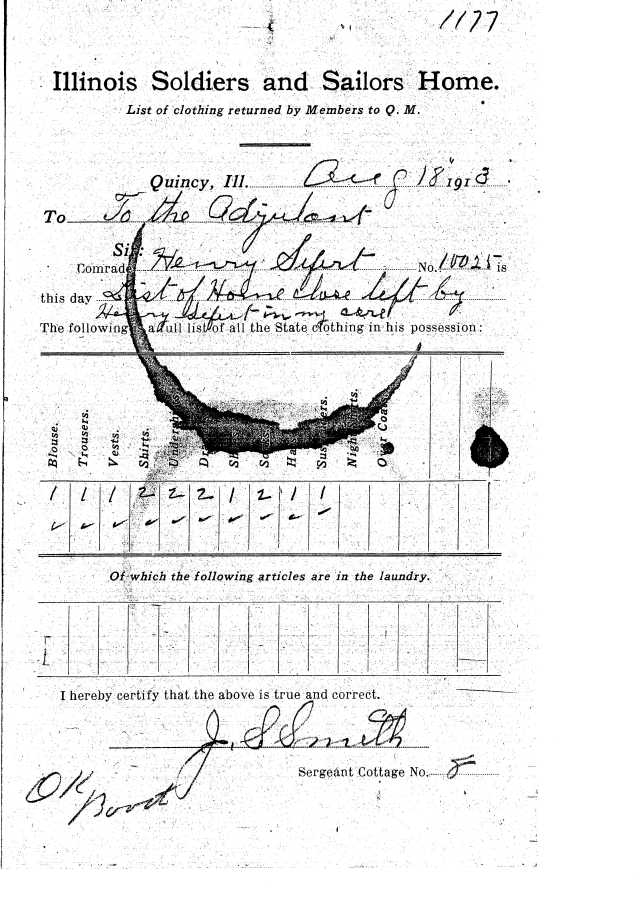 1177
Illinois Soldiers and Sailors Home.
List of clothing returned by Members to Q. M.
Quincy, Ill. Aug 18" 1913
To To the Adjutant
Sir:
Comrade Henry Sifert No. 10025 is
this day List of Home close left by
Henry Sifert in my care
The following is a full list of all the State clothing in his possession:
Blouse. Trousers. Vests. Shirts. Undershirts Over Coat
1 1 1 2 2 2 1 2 1 1
Of which the following articles are in the laundry.
I hereby certify that the above is true and correct.
J. S Smith
Sergeant Cottage No. 8
OK